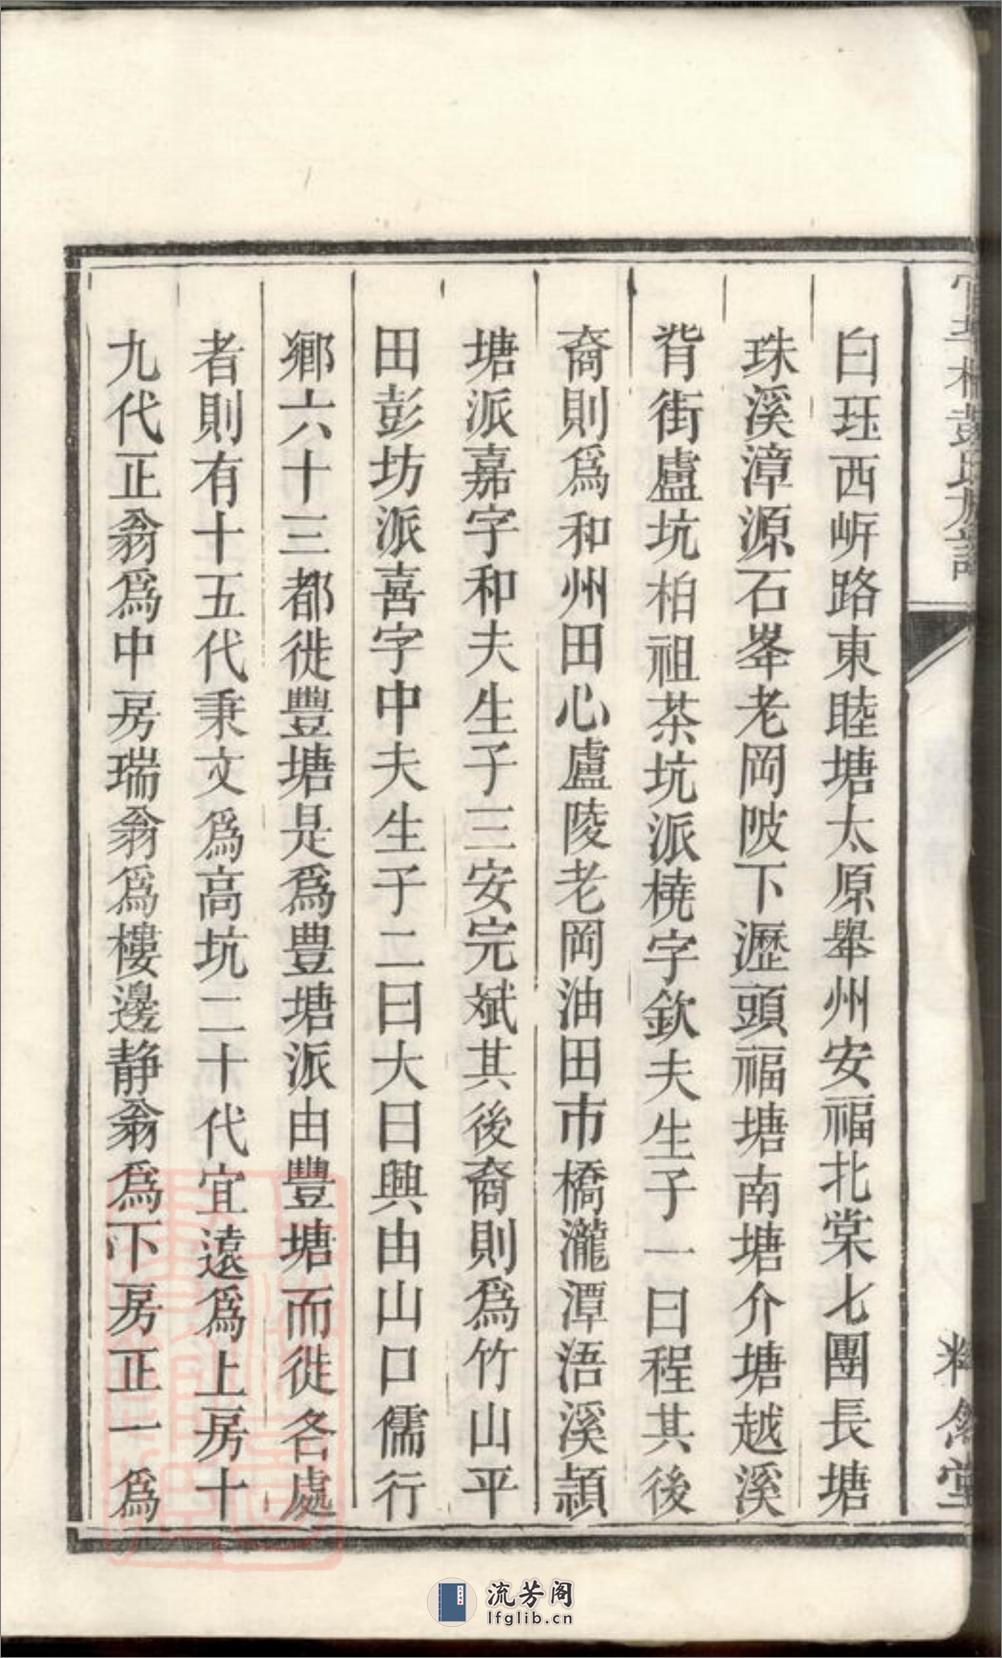 白珏西㟁路東睦塘太原舉州安福北棠七團長塘
珠溪漳源石峯老岡陂下瀝頭福塘南塘介塘越溪
背街盧坑柏祖茶坑派橈字欽夫生子一曰程其後
裔則爲和州田心盧陵老岡油田市橋瀧潭浯溪頴
塘派嘉字和夫生子三安完斌其後裔則爲竹山平
田彭坊派喜字中夫生子二曰大曰興由山口儒行
鄉六十三都徙豐塘是爲豊塘派由豐塘而徙各處
者則有十五代秉文爲高坑二十代宜遠爲上房十
九代正翁爲中房瑞翁爲樓邊静翁爲下房正一爲
流芳阁
lfglib.cn